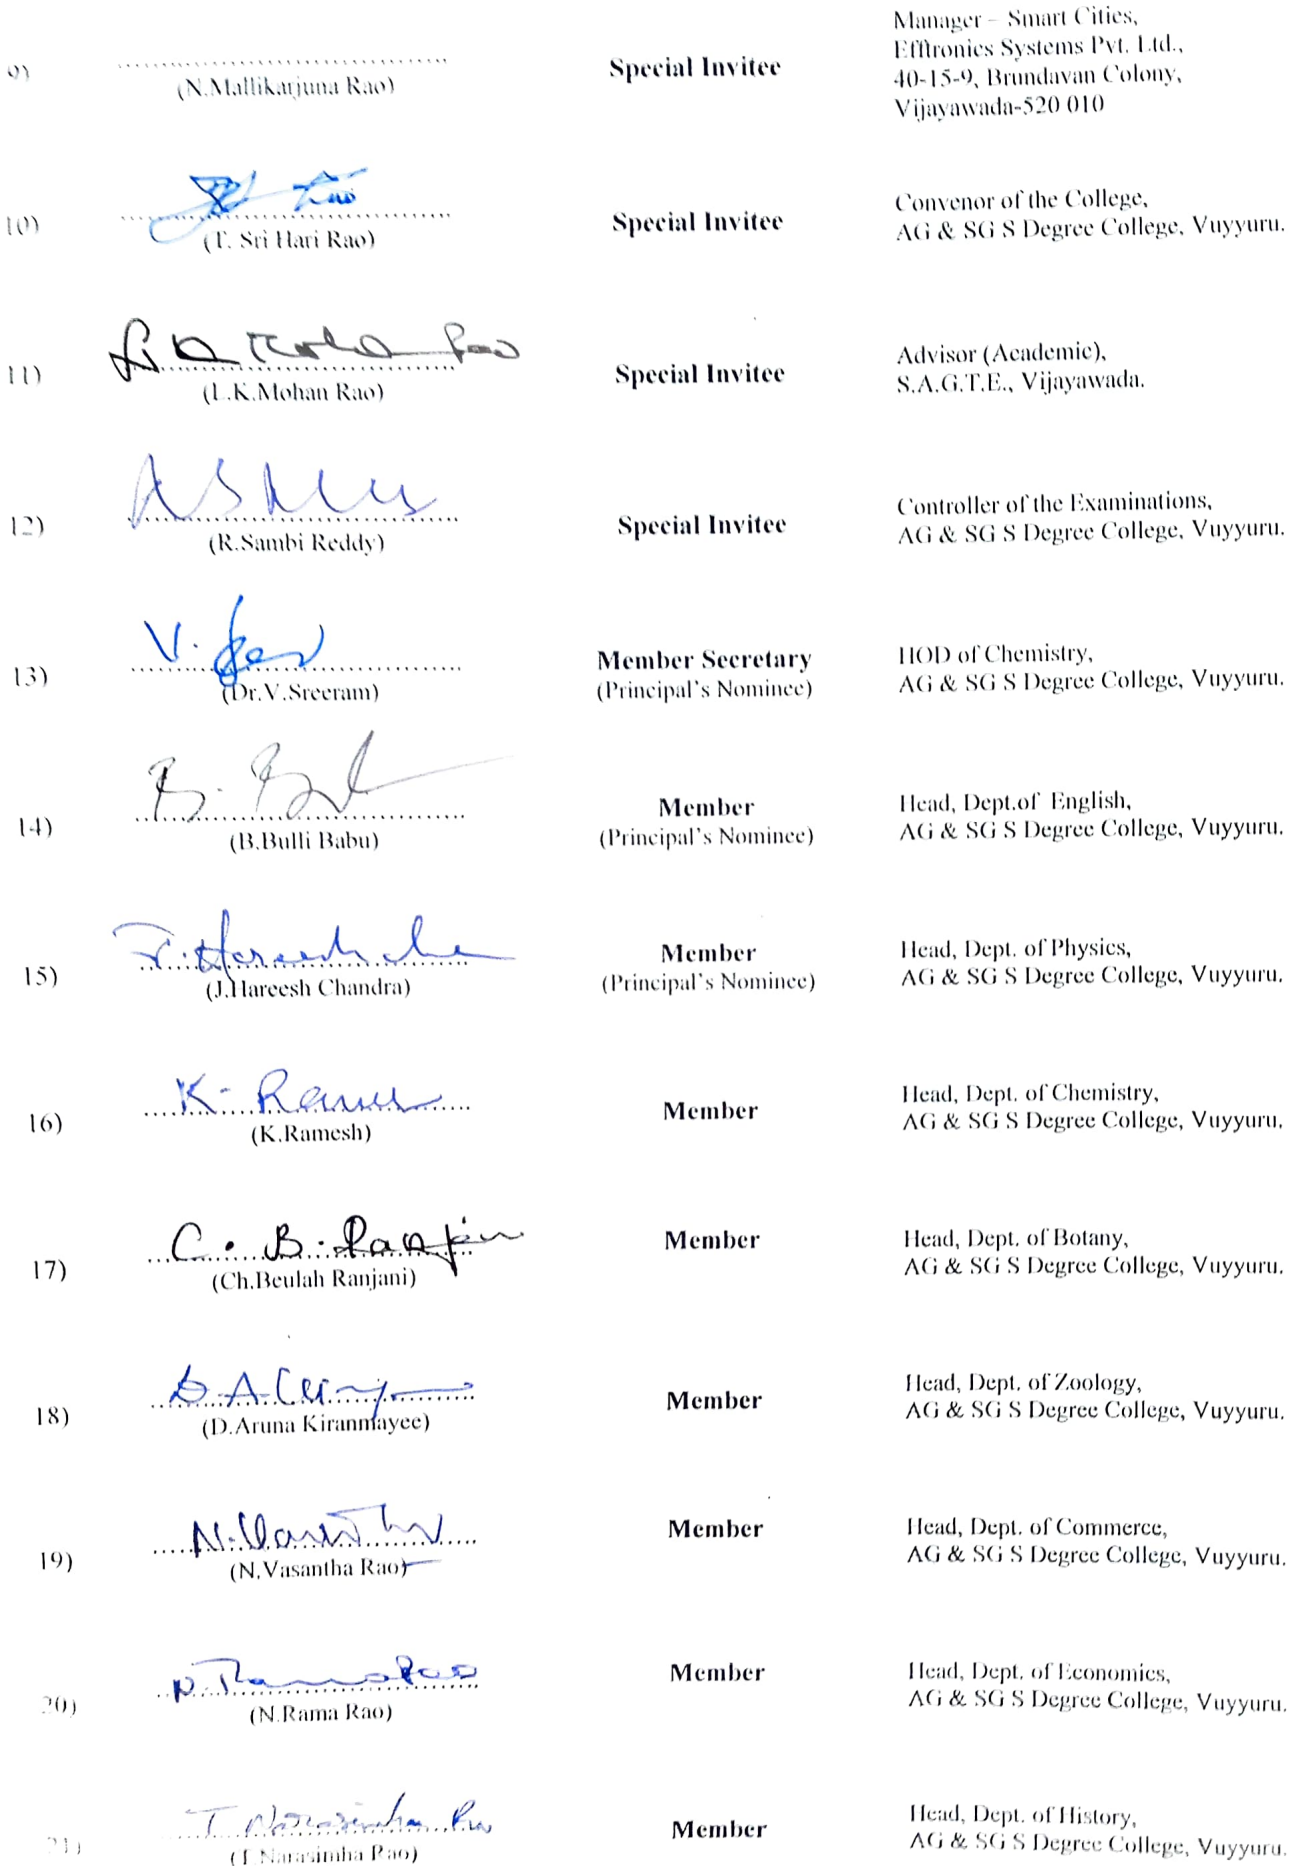 Manager – Smart Cities,
9) (N.Mallikarjuna Rao) Special Invitee Efftronics Systems Pvt. Ltd.,
40-15-9, Brundavan Colony,
Vijayawada-520 010
Rao
10) (T. Sri Hari Rao) Special Invitee Convenor of the College,
AG & SG S Degree College, Vuyyuru.
L K Mohan Rao
11) (L.K.Mohan Rao) Special Invitee Advisor (Academic),
S.A.G.T.E., Vijayawada.
12) (R.Sambi Reddy) Special Invitee Controller of the Examinations,
AG & SG S Degree College, Vuyyuru.
V.
13) (Dr.V.Sreeram) Member Secretary HOD of Chemistry,
(Principal's Nominee) AG & SG S Degree College, Vuyyuru.
B.
14) (B.Bulli Babu) Member Head, Dept.of English,
(Principal's Nominee) AG & SG S Degree College, Vuyyuru.
J. Hareesh
15) (J.Hareesh Chandra) Member Head, Dept. of Physics,
(Principal's Nominee) AG & SG S Degree College, Vuyyuru.
K. Ramesh
16) (K.Ramesh) Member Head, Dept. of Chemistry,
AG & SG S Degree College, Vuyyuru.
C. B. Ranjani
17) (Ch.Beulah Ranjani) Member Head, Dept. of Botany,
AG & SG S Degree College, Vuyyuru.
D. A.
18) (D.Aruna Kiranmayee) Member Head, Dept. of Zoology,
AG & SG S Degree College, Vuyyuru.
N. Vasantha
19) (N.Vasantha Rao) Member Head, Dept. of Commerce,
AG & SG S Degree College, Vuyyuru.
N. Rama Rao
20) (N.Rama Rao) Member Head, Dept. of Economics,
AG & SG S Degree College, Vuyyuru.
T Narasimha Rao
21) (T.Narasimha Rao) Member Head, Dept. of History,
AG & SG S Degree College, Vuyyuru.